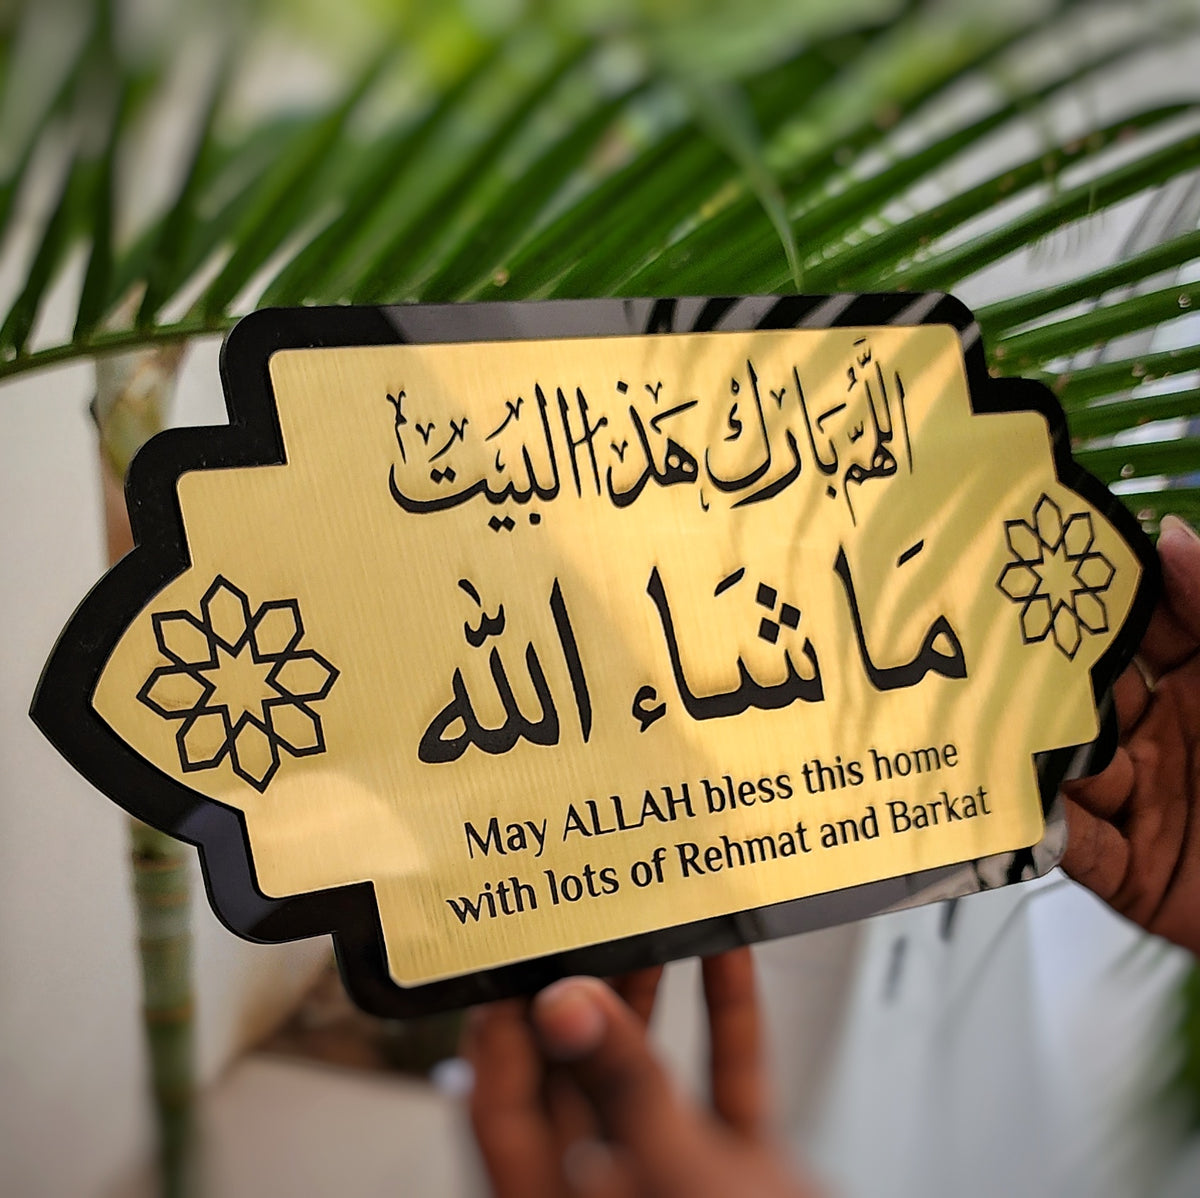 اللَّهُمَّ بَارِكْ هَذَا الْبَيْت
مَا شَاءَ اللّٰه
May ALLAH bless this home
with lots of Rehmat and Barkat